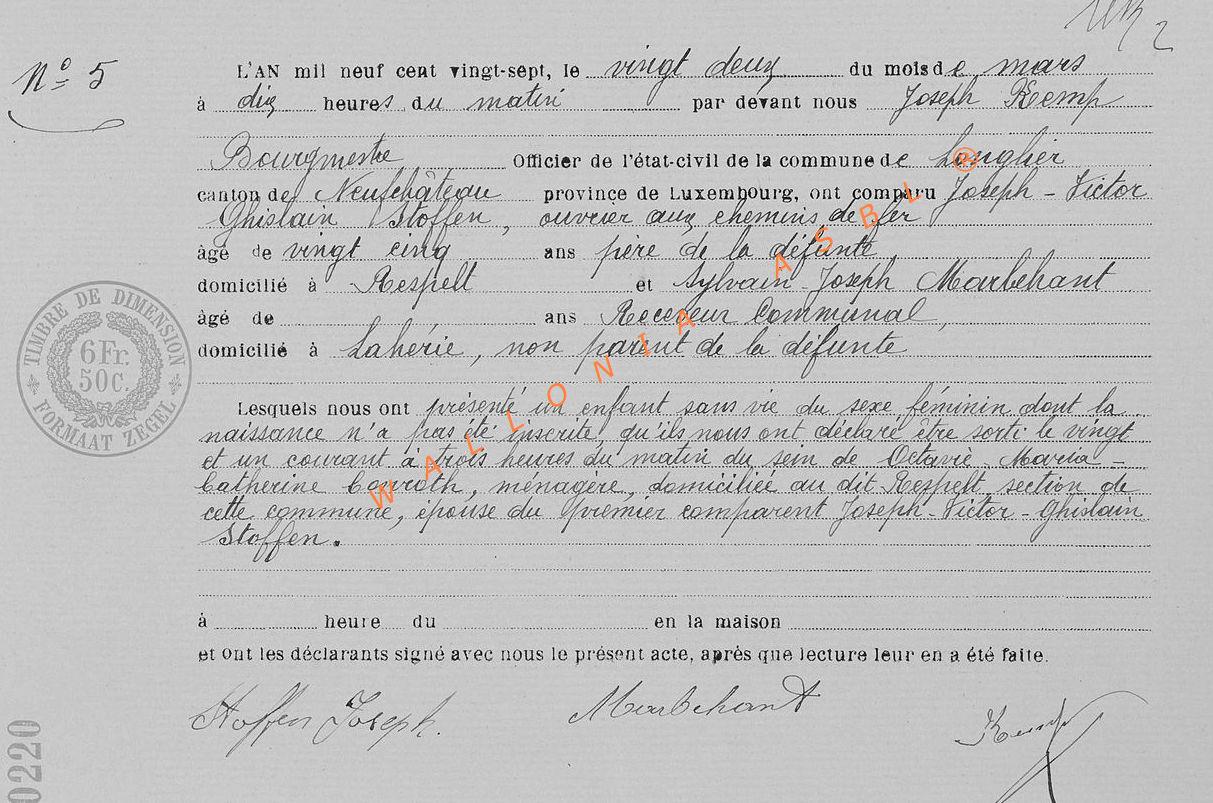 Nº 5
L'AN mil neuf cent vingt-sept, le vingt deux du mois de mars
à dix heures du matin par devant nous Joseph Kemp
Bourgmestre Officier de l'état-civil de la commune de Longlier
canton de Neufchâteau province de Luxembourg, ont comparu Joseph-Victor
Ghislain Stoffen, ouvrier aux chemins de fer
âgé de vingt cinq ans père de la défunte
domicilié à Respelt et Sylvain-Joseph Marbehant
âgé de ans Receveur Communal,
domicilié à Lahérie, non parent de la défunte
Lesquels nous ont présenté un enfant sans vie du sexe féminin dont la
naissance n'a pas été inscrite, qu'ils nous ont déclaré être sorti le vingt
et un courant à trois heures du matin du sein de Octavie Maria-
Catherine, ménagère, domiciliée au dit Respelt section de
cette commune, épouse du premier comparent Joseph-Victor-Ghislain
Stoffen.
à heure du en la maison
et ont les déclarants signé avec nous le présent acte, après que lecture leur en a été faite.
Stoffen Joseph. Marbehant Kemp
TIMBRE DE DIMENSION
6 Fr. 50 C.
FORMAAT ZEGEL
0220
WALLONIA ASBL ®